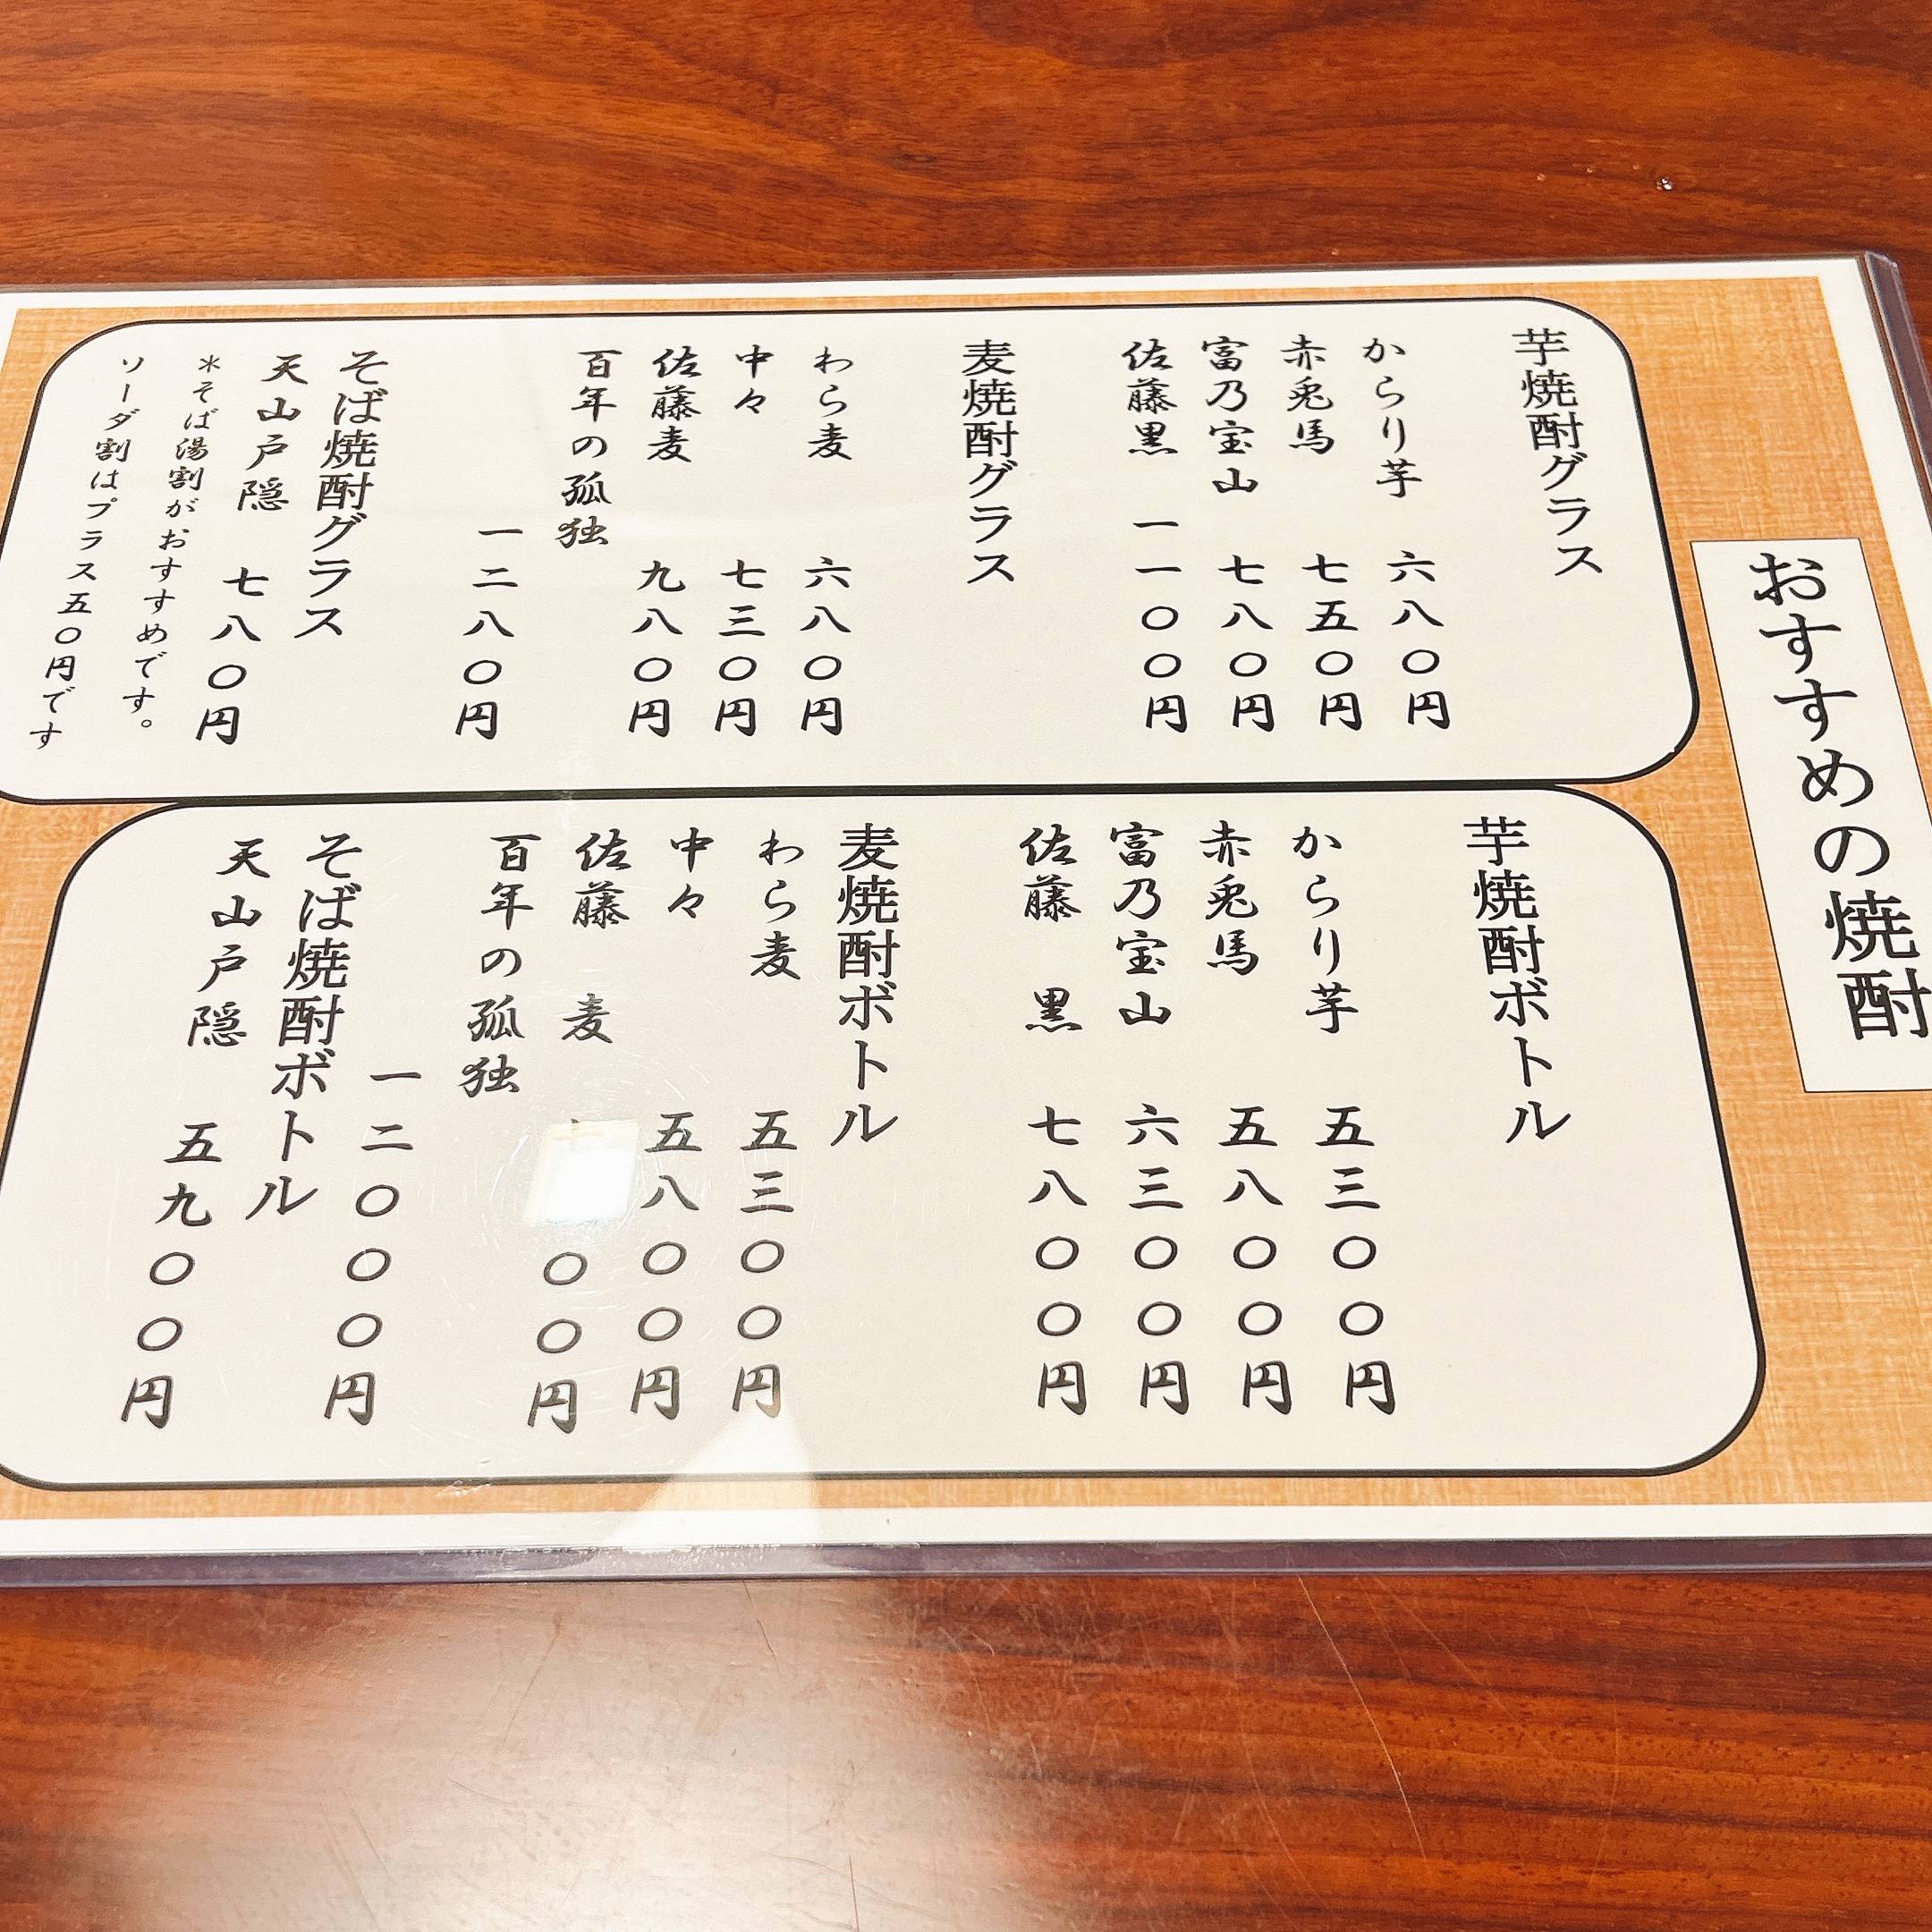 おすすめの焼酎
芋焼酎グラス
からり芋 六八〇円
赤兎馬 七五〇円
富乃宝山 七八〇円
佐藤黒 一一〇〇円
麦焼酎グラス
わら麦 六八〇円
中々 七三〇円
佐藤麦 九八〇円
百年の孤独
一二八〇円
そば焼酎グラス
天山戸隠 七八〇円
*そば湯割がおすすめです。
ソーダ割はプラス五〇円です
芋焼酎ボトル
からり芋 五三〇〇円
赤兎馬 五八〇〇円
富乃宝山 六三〇〇円
佐藤 黒 七八〇〇円
麦焼酎ボトル
わら麦 五三〇〇円
中々 五八〇〇円
佐藤 麦 〇〇円
百年の孤独
一二〇〇〇円
そば焼酎ボトル
天山戸隠 五九〇〇円